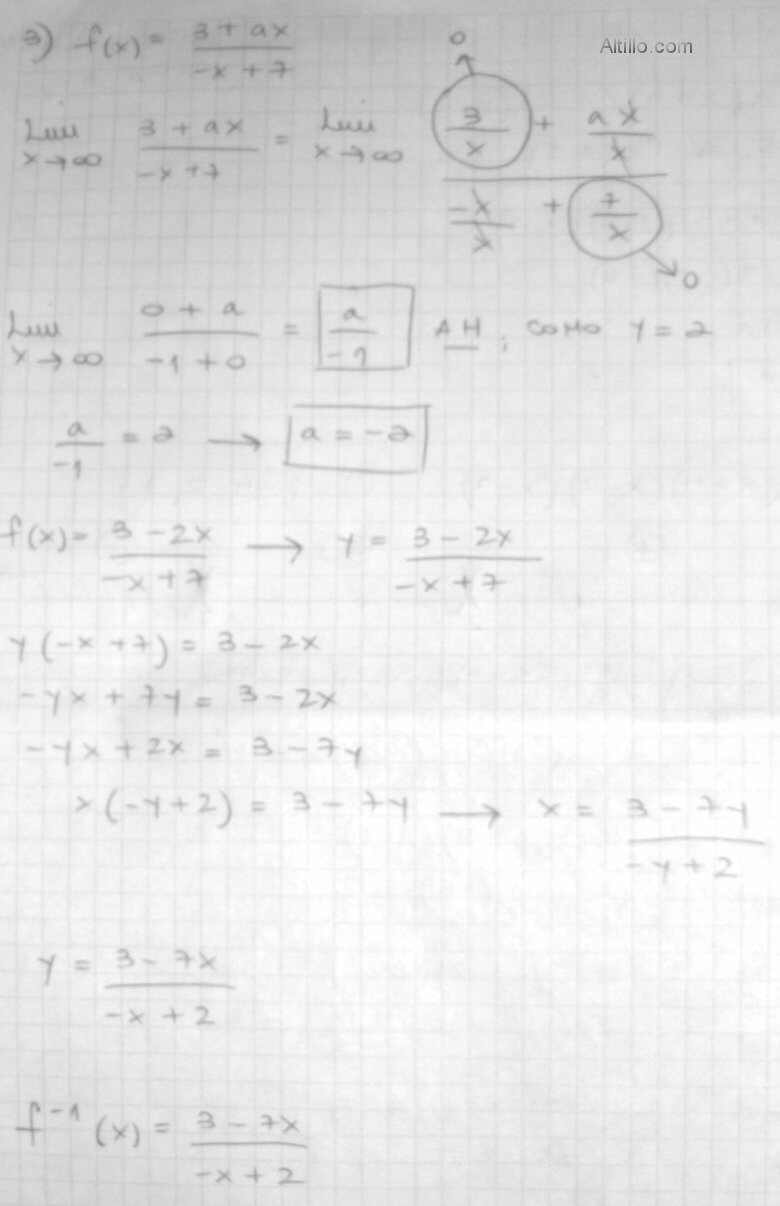 Altillo.com
3) f(x) = (3 + ax)/(-x + 7)
Lim x→∞ (3 + ax)/(-x + 7) = Lim x→∞ (3/x + ax/x)/(-x/x + 7/x) 0 0
Lim x→∞ (0 + a)/(-1 + 0) = a/-1 AH ; COMO Y = 2
a/-1 = 2 → a = -2
f(x) = (3 - 2x)/(-x + 7) → y = (3 - 2x)/(-x + 7)
y(-x + 7) = 3 - 2x
-yx + 7y = 3 - 2x
-yx + 2x = 3 - 7y
x(-y + 2) = 3 - 7y → x = (3 - 7y)/(-y + 2)
y = (3 - 7x)/(-x + 2)
f⁻¹(x) = (3 - 7x)/(-x + 2)